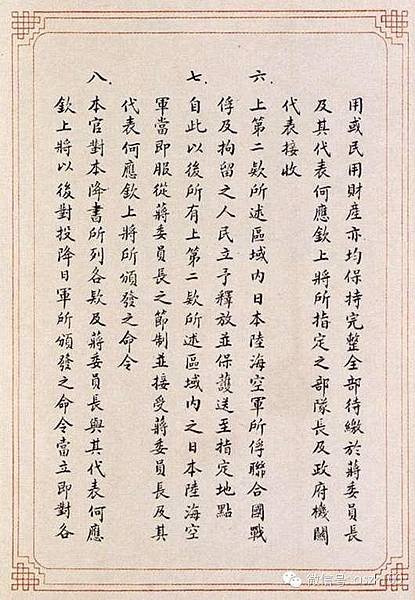 用或民用財產亦均保持完整全部待繳於蔣委員長
及其代表何應欽上將所指定之部隊長及政府機關
代表接收
六、上第二欵所述區域内日本陸海空軍所俘聯合國戰
俘及拘留之人民立予釋放並保護送至指定地點
七、自此以後所有上第二欵所述區域內之日本陸海空
軍當即服從蔣委員長之節制並接受蔣委員長及其
代表何應欽上將所頒發之命令
八、本官對本降書所列各欵及蔣委員長與其代表何應
欽上將以後對投降日軍所頒發之命令當立即對各
微信号: